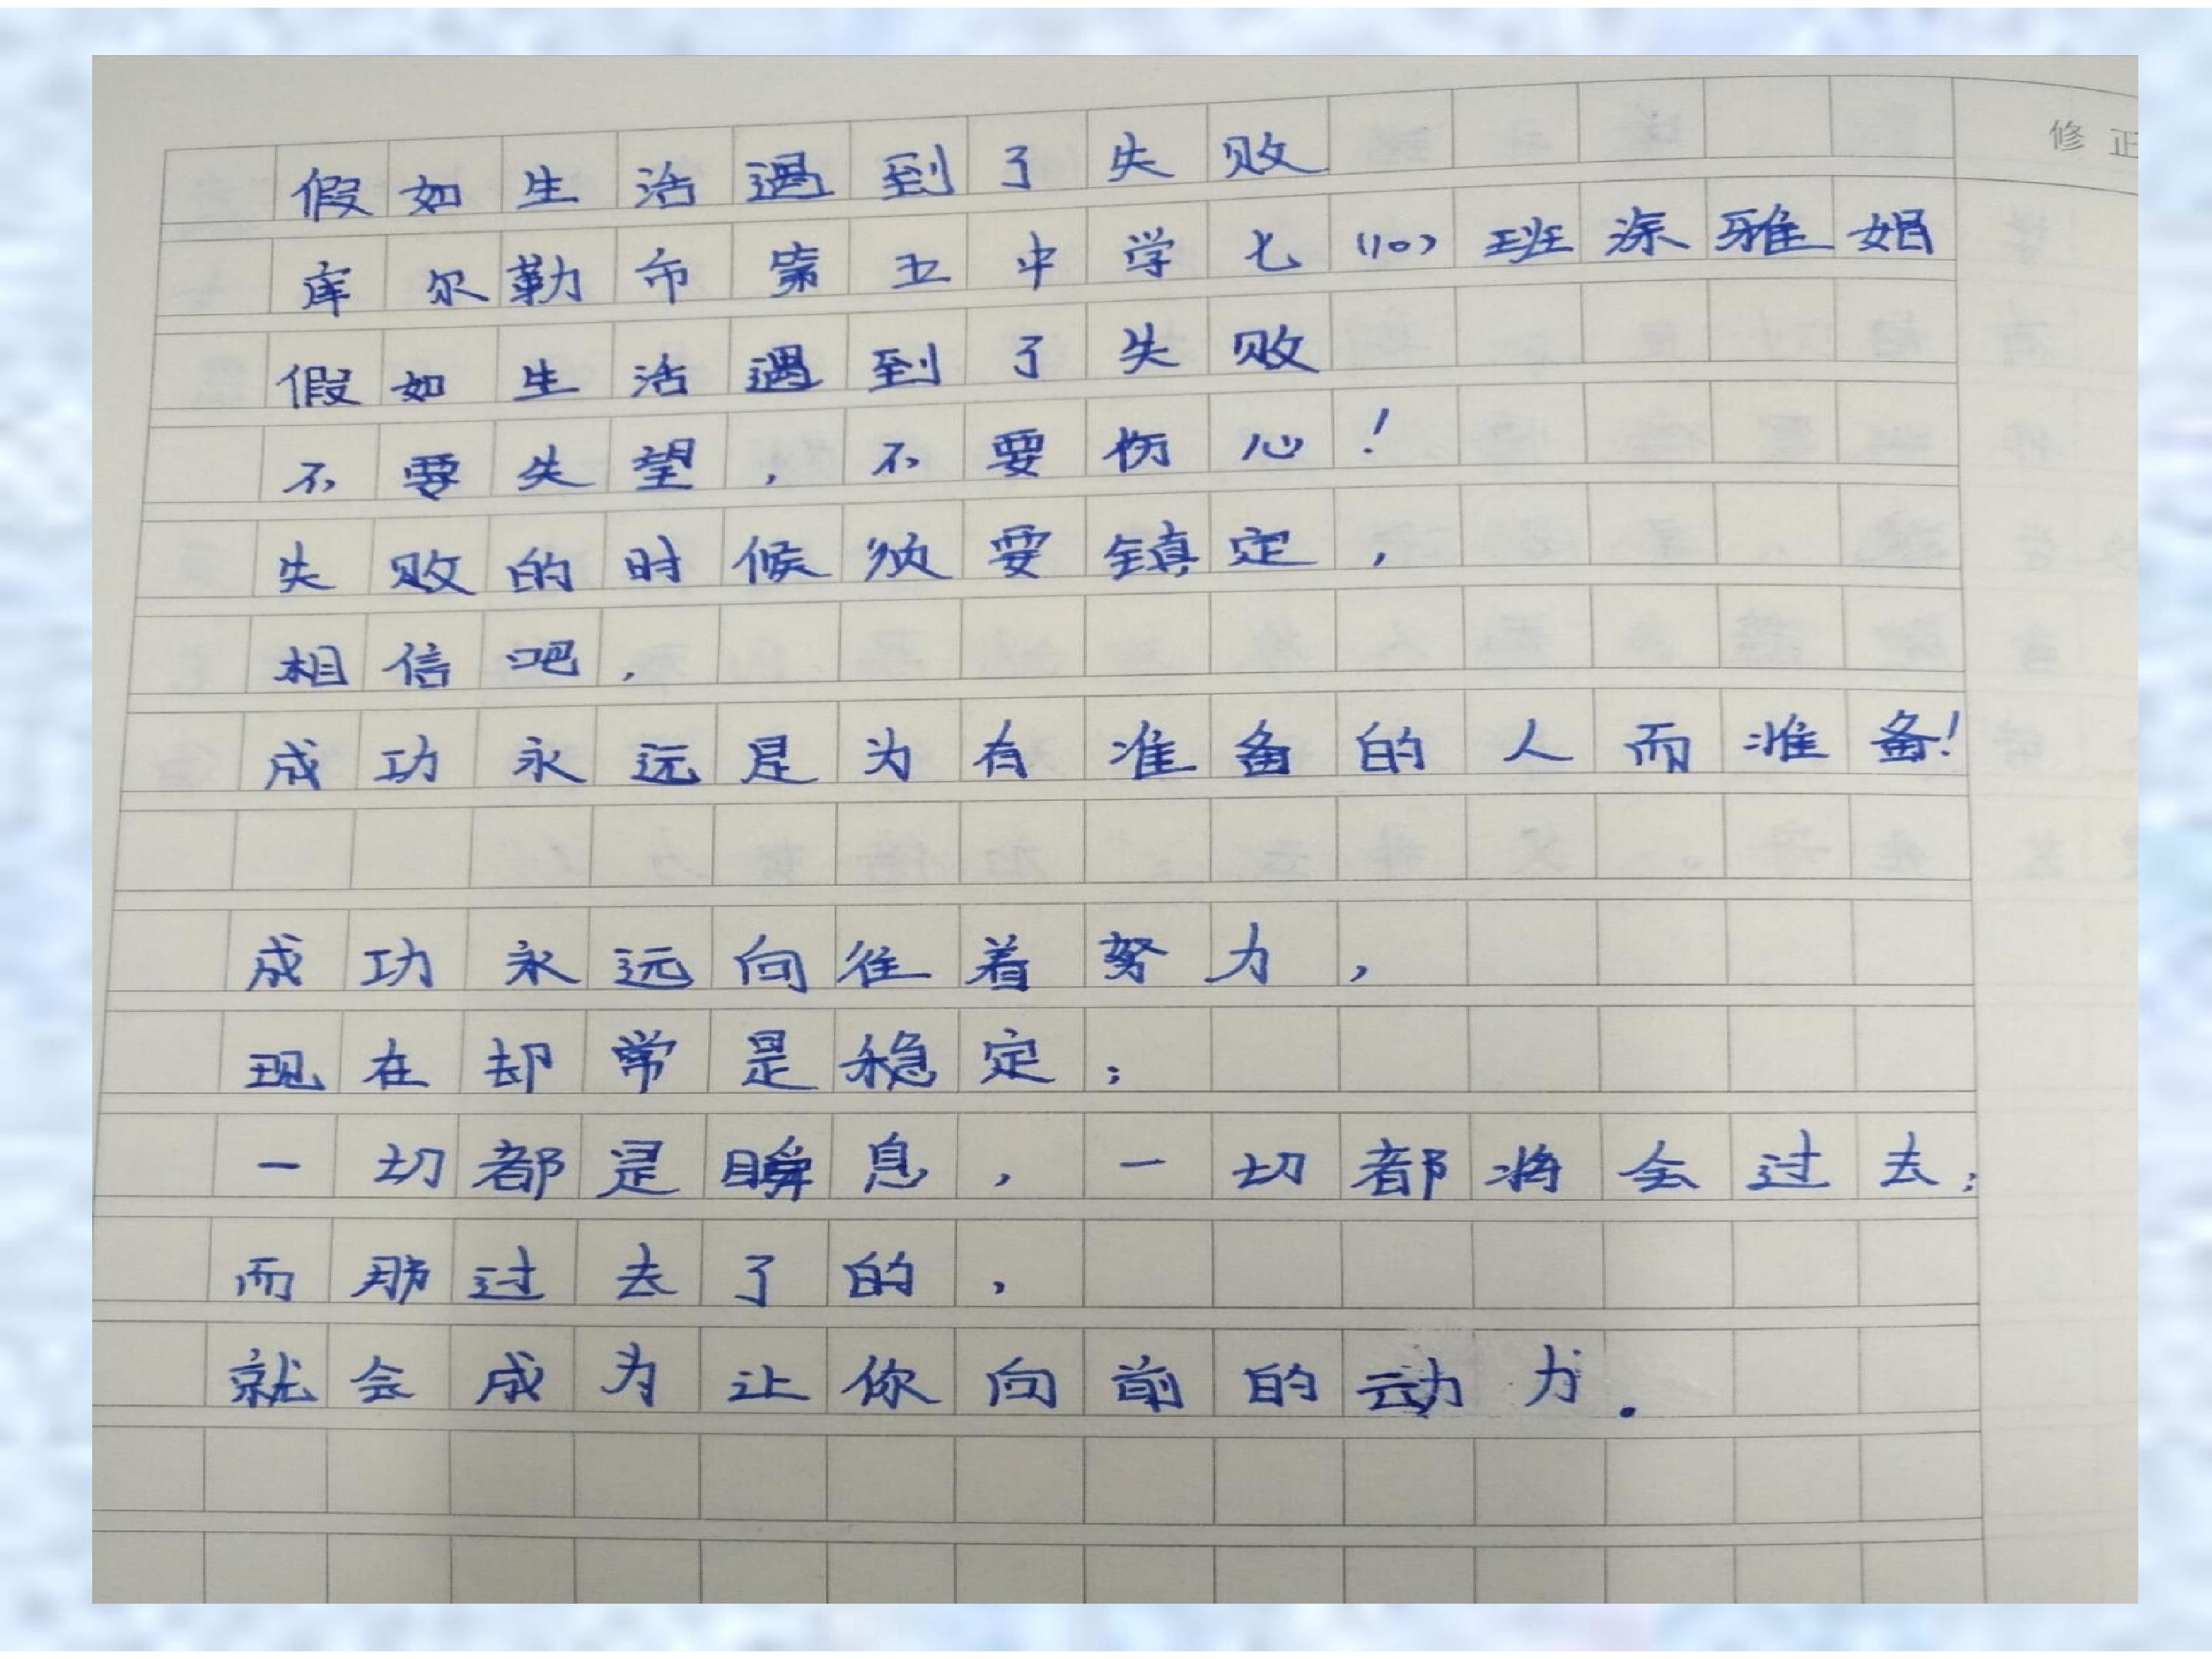 假如生活遇到了失败
修正
库尔勒市第五中学七(10)班涂雅娟
假如生活遇到了失败
不要失望,不要伤心!
失败的时候须要镇定,
相信吧,
成功永远是为有准备的人而准备!
成功永远向往着努力,
现在却常是稳定;
一切都是瞬息,一切都将会过去;
而那过去了的,
就会成为让你向前的动力.